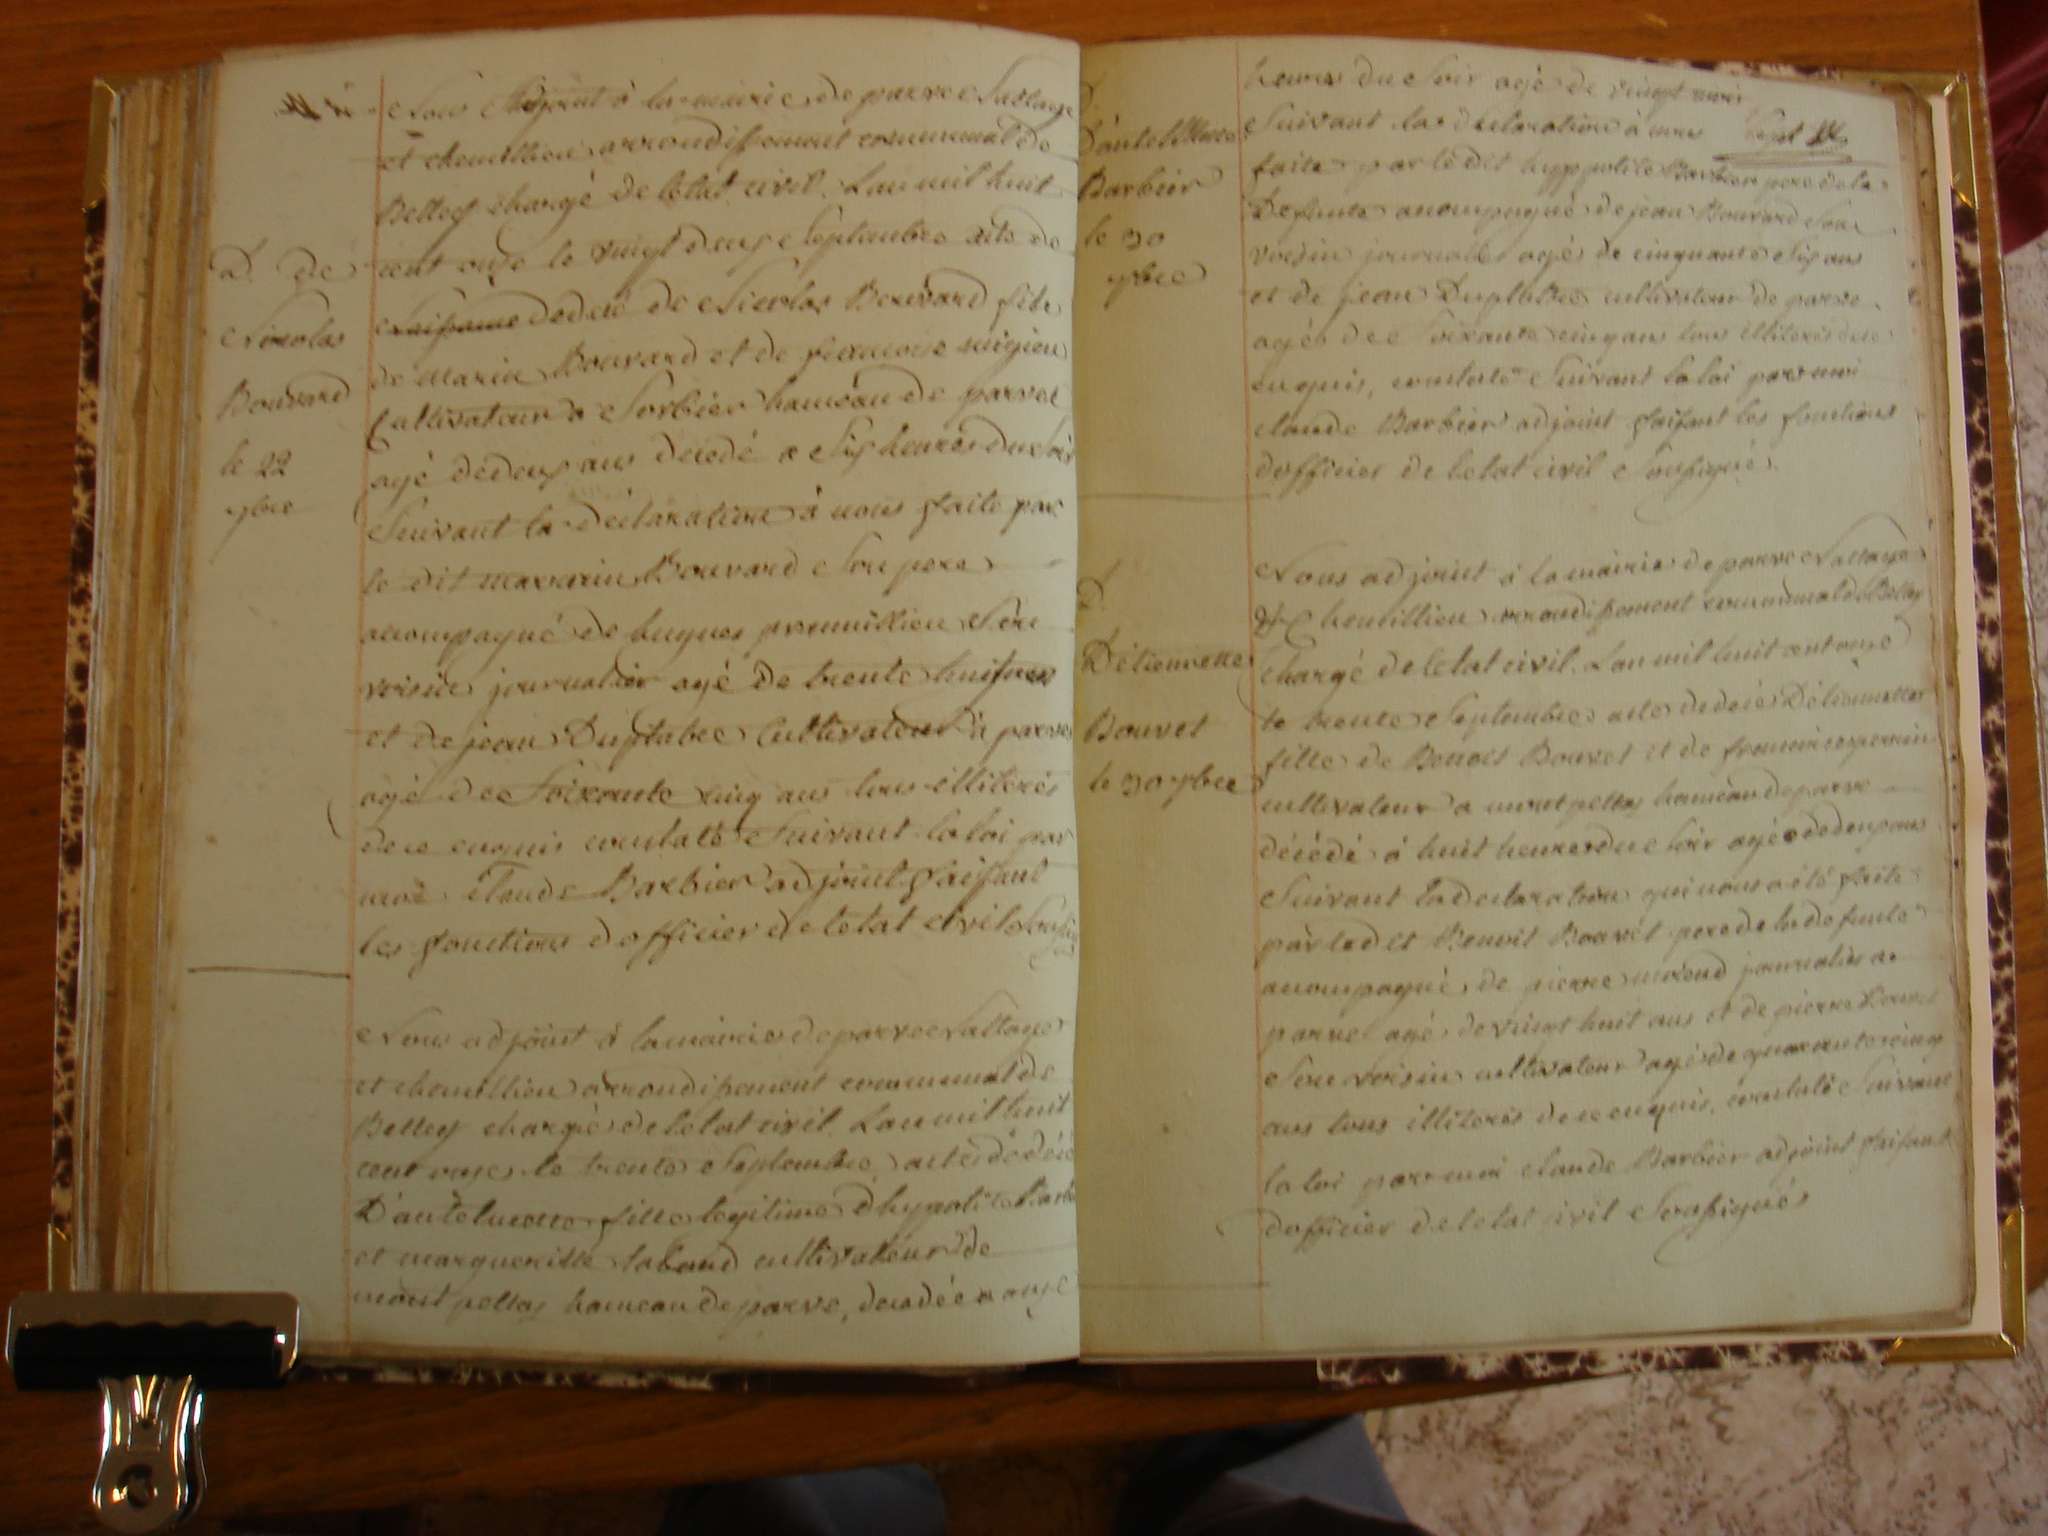 Nous adjoint à la mairie de parve Nattage
et chemillieu arrondissement communal de
Belley chargé de letat civil. Lan mil huit
cent onze le vingt deux Septembre acte de
dedecé de Nicolas Bouvard fils
de marin Bouvard et de francoise
Cultivateur a Sorbier hameau de parve
agé dedeux ans decedé a Six heures du Soir
Suivant la déclaration à nous faite par
le dit Bouvard Son pere
acompagné de hugues Son
voisin journalier agé de trente huit ans
et de jean Duplatre Cultivateur à parve
agé de Soixante cinq ans tous illiterés
de ce enquis constaté Suivant la loi par
moi Claude Barbier adjoint faisant
les fonctions dofficier de letat civil Sousigné
D. de
Nicolas
Bouvard
le 22
7bre
Nous adjoint à la mairie de parve Nattage
et chemillieu arrondissement communal de
Belley chargé de letat civil. Lan mil huit
cent onze le trente Septembre acte dedécé
D'antelmette fille legitime d'hypolite Barbier
et margueritte cultivateur de
mont pellas hameau de parve, decedée a onze
D.
D'antelmette
Barbier
le 30
7bre
heures du Soir agé de vingt mois
Suivant la declaration à nous
faite par le dit hyppolite Barbier pere de la
Defunte acompagné de jean Bouvard Son
voisin journalier agé de cinquante Six ans
et de jean Duplatre cultivateur de parve
agé de Soixante cinq ans tous illiterés de ce
enquis, constaté Suivant la loi par moi
claude Barbier adjoint faisant les fonctions
dofficier de letat civil Sousigné.
D.
D'étiennette
Bouvet
le 30 7bre
Nous adjoint à la mairie de parve Nattage
& Chemillieu arrondissement communal de Belley
Chargé de letat civil. Lan mil huit cent onze
le trente Septembre acte dedecé D'étiennette
fille de Benoit Bouvet et de francoise perrin
cultivateur a mont pellas hameau de parve
décédé à huit heures du Soir agée dedeux ans
Suivant la declaration qui nous a été faite
par ledit Benoit Bouvet pere de la defunte
acompagné de pierre journalier a
parve agé de vingt huit ans et de pierre Bouvet
Son voisin cultivateur agé de quarante cinq
ans tous illiterés de ce enquis, constaté Suivant
la loi par moi Claude Barbier adjoint faisant
dofficier de letat civil Sousignés